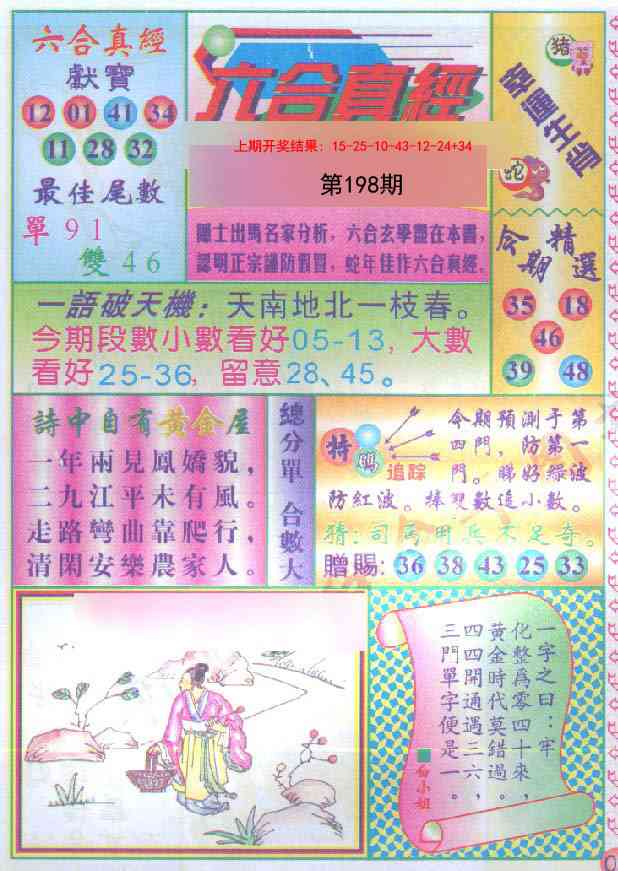 六合真經
獻寶
12 01 41 34
11 28 32
最佳尾數
單 9 1
雙 4 6
六合真經
上期开奖结果：15-25-10-43-12-24+34
第198期
隱士出馬名家分析，六合玄學盡在本書，
認明正宗謹防假冒，蛇年佳作六合真經。
猪
蛇
今期精選
35 18
46
39 48
一語破天機：天南地北一枝春。
今期段數小數看好05-13，大數
看好25-36，留意28、45。
詩中自有黃金屋
一年兩見鳳嬌貌，
二九江平未有風。
走路彎曲靠爬行，
清閑安樂農家人。
總分單 合數大
特
追踪
今期預測于第
四門，防第一
門。睇好綠波
防紅波。捧雙數追小數。
猜：司馬用兵不足奇。
贈賜：36 38 43 25 33
一字之曰：牢
化整爲零四十來，
黃金時代莫錯過，
四四開通遇三六，
三門單字便是一。
白小姐